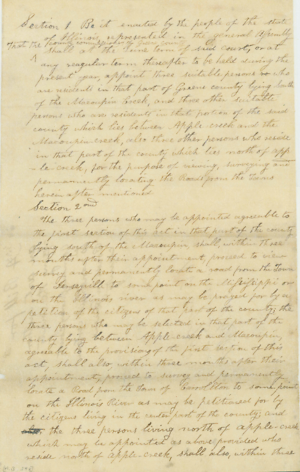 Section 1 Be it enacted by the people of the state
of Illinois, represented in the general Assembly
That the county
shall at the June term of said county or at
any regular term thereafter to be held during the
present year, appoint three suitable persons who
are residents in that part of Greene county lying south
of the Macoupin Creek, and three other suitable
persons who are residents in that portion of the said
county which lies between Apple creek and the
Macoupin creek, also three other persons who reside
in that part of the county which lies north of app
le creek, for the purpose of viewing, surveying and
permanently locating the roads from the towns
herein after mentioned
Section 2nd
The three persons who may be appointed agreeable to
the first section of this act in that part of the county
lying south of the Macoupin, shall, within three
months after their appointment, proceed to view
survey and permanently locate a road from the Town
of to some point on the Mississippi or
on the Illinois river as may be prayed for by a
petition of the citizens of that part of the county; the
three persons who may be selected in that part of the
county lying between Apple creek and Macoupin,
agreeable to the provisions of the first section of this
act, shall also within three months after their
appointment, proceed to survey and permanently
locate a road from the town of Carrollton to some point
on the Illinois River as may be petitioned for by
the citizens living in the part of the county; and
the three persons living north of apple creek
which may be appointed as above provided who
reside north of apple creek, shall also, within three